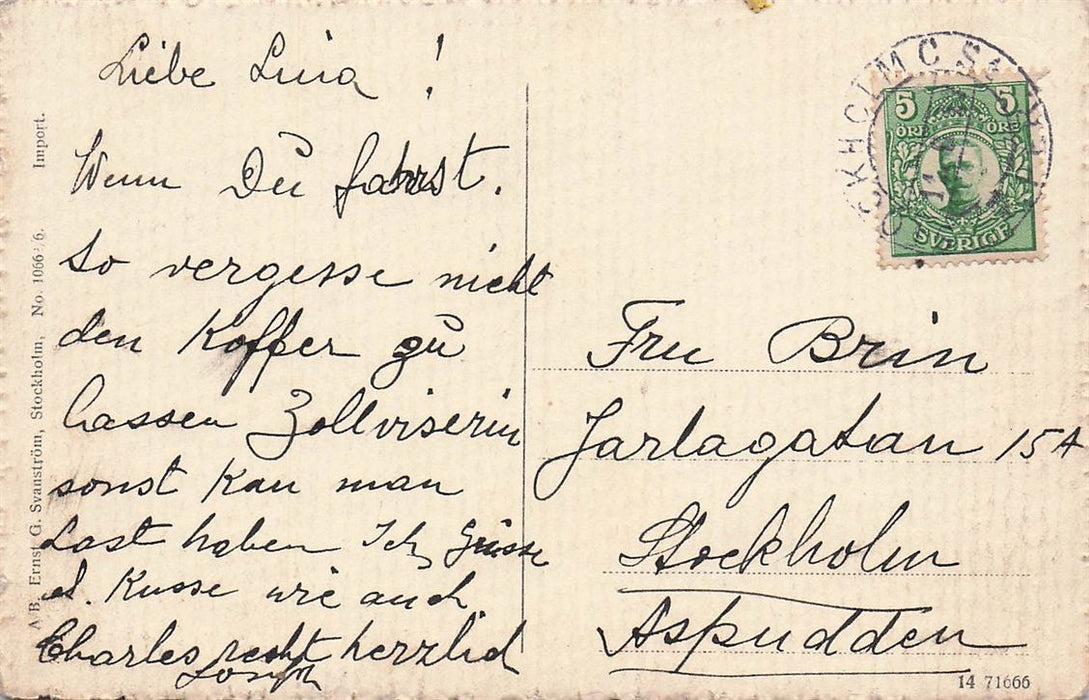 Liebe Luia!
Wenn Du fahrst.
so vergesse nicht
den Koffer zu
lassen Zollviserin
sonst kan man
Last haben Ich Grüsse
u. Kusse wie auch
Charles recht herzlid
Joseph
A/B. Ernst G. Svanström, Stockholm, No. 1066/6. Import.
STOCKHOLM C
5 5
ÖRE ÖRE
SVERIGE
Fru Brin
Jarlagatan 15A
Stockholm
Aspudden
14 71666